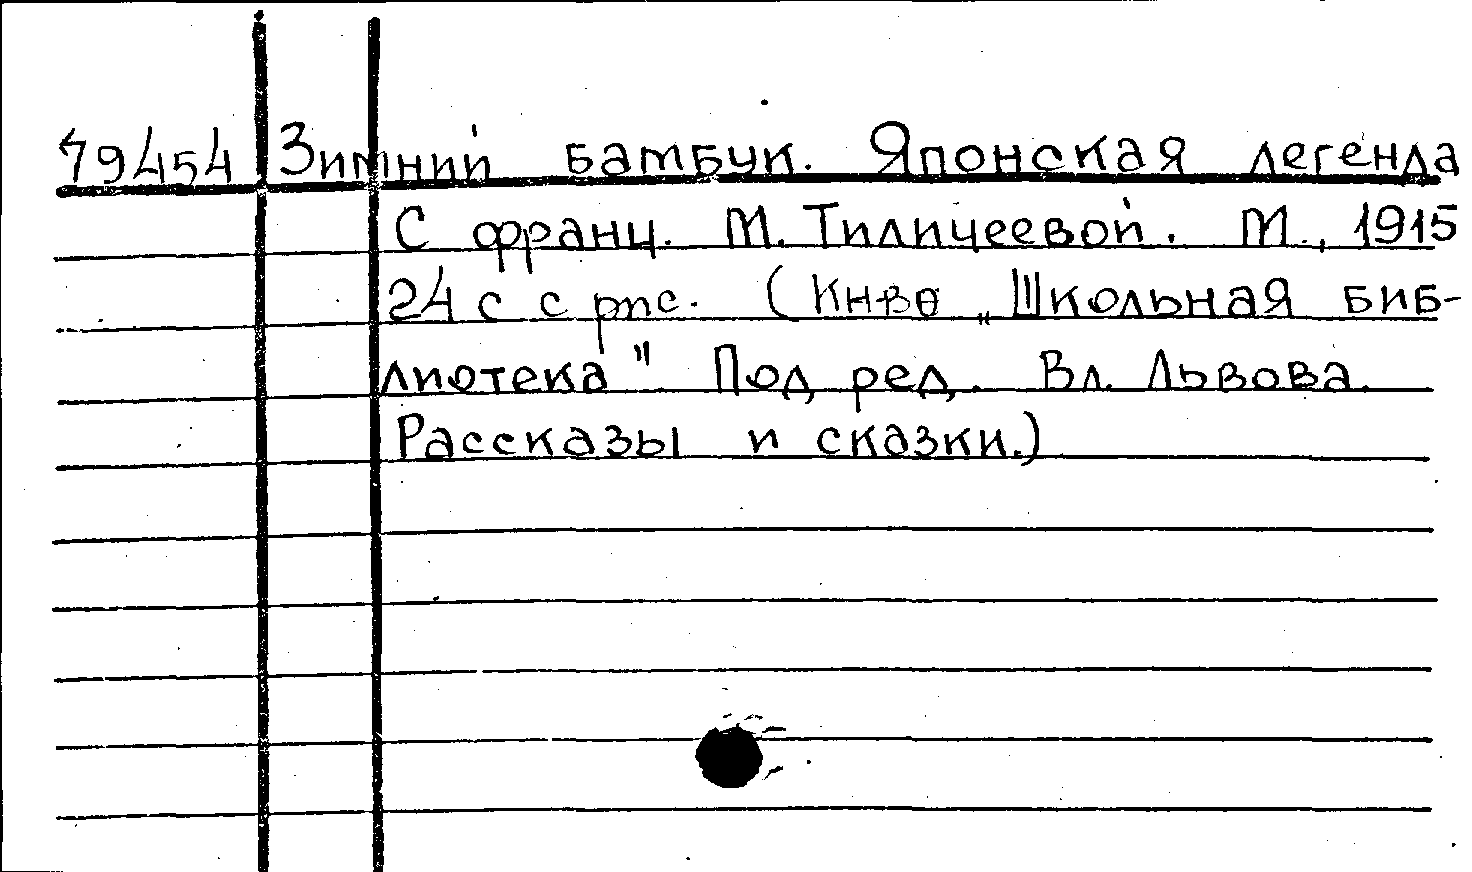 79454 Зимний бамбук. Японская легенда
С франц. М. Тиличеевой. М., 1915
24 с с рис. (Кнво „Школьная биб-
лиотека" Под ред. Вл. Львова.
Рассказы и сказки.)